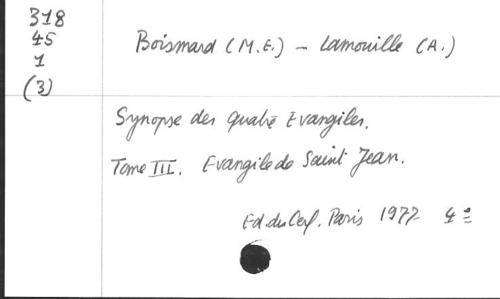 318
45
1
(3)
Boismard (M.E.) - Lamouille (A.)
Synopse des quatre Evangiles.
Tome III. Evangile de Saint Jean.
Ed. du Cerf. Paris 1977 4º